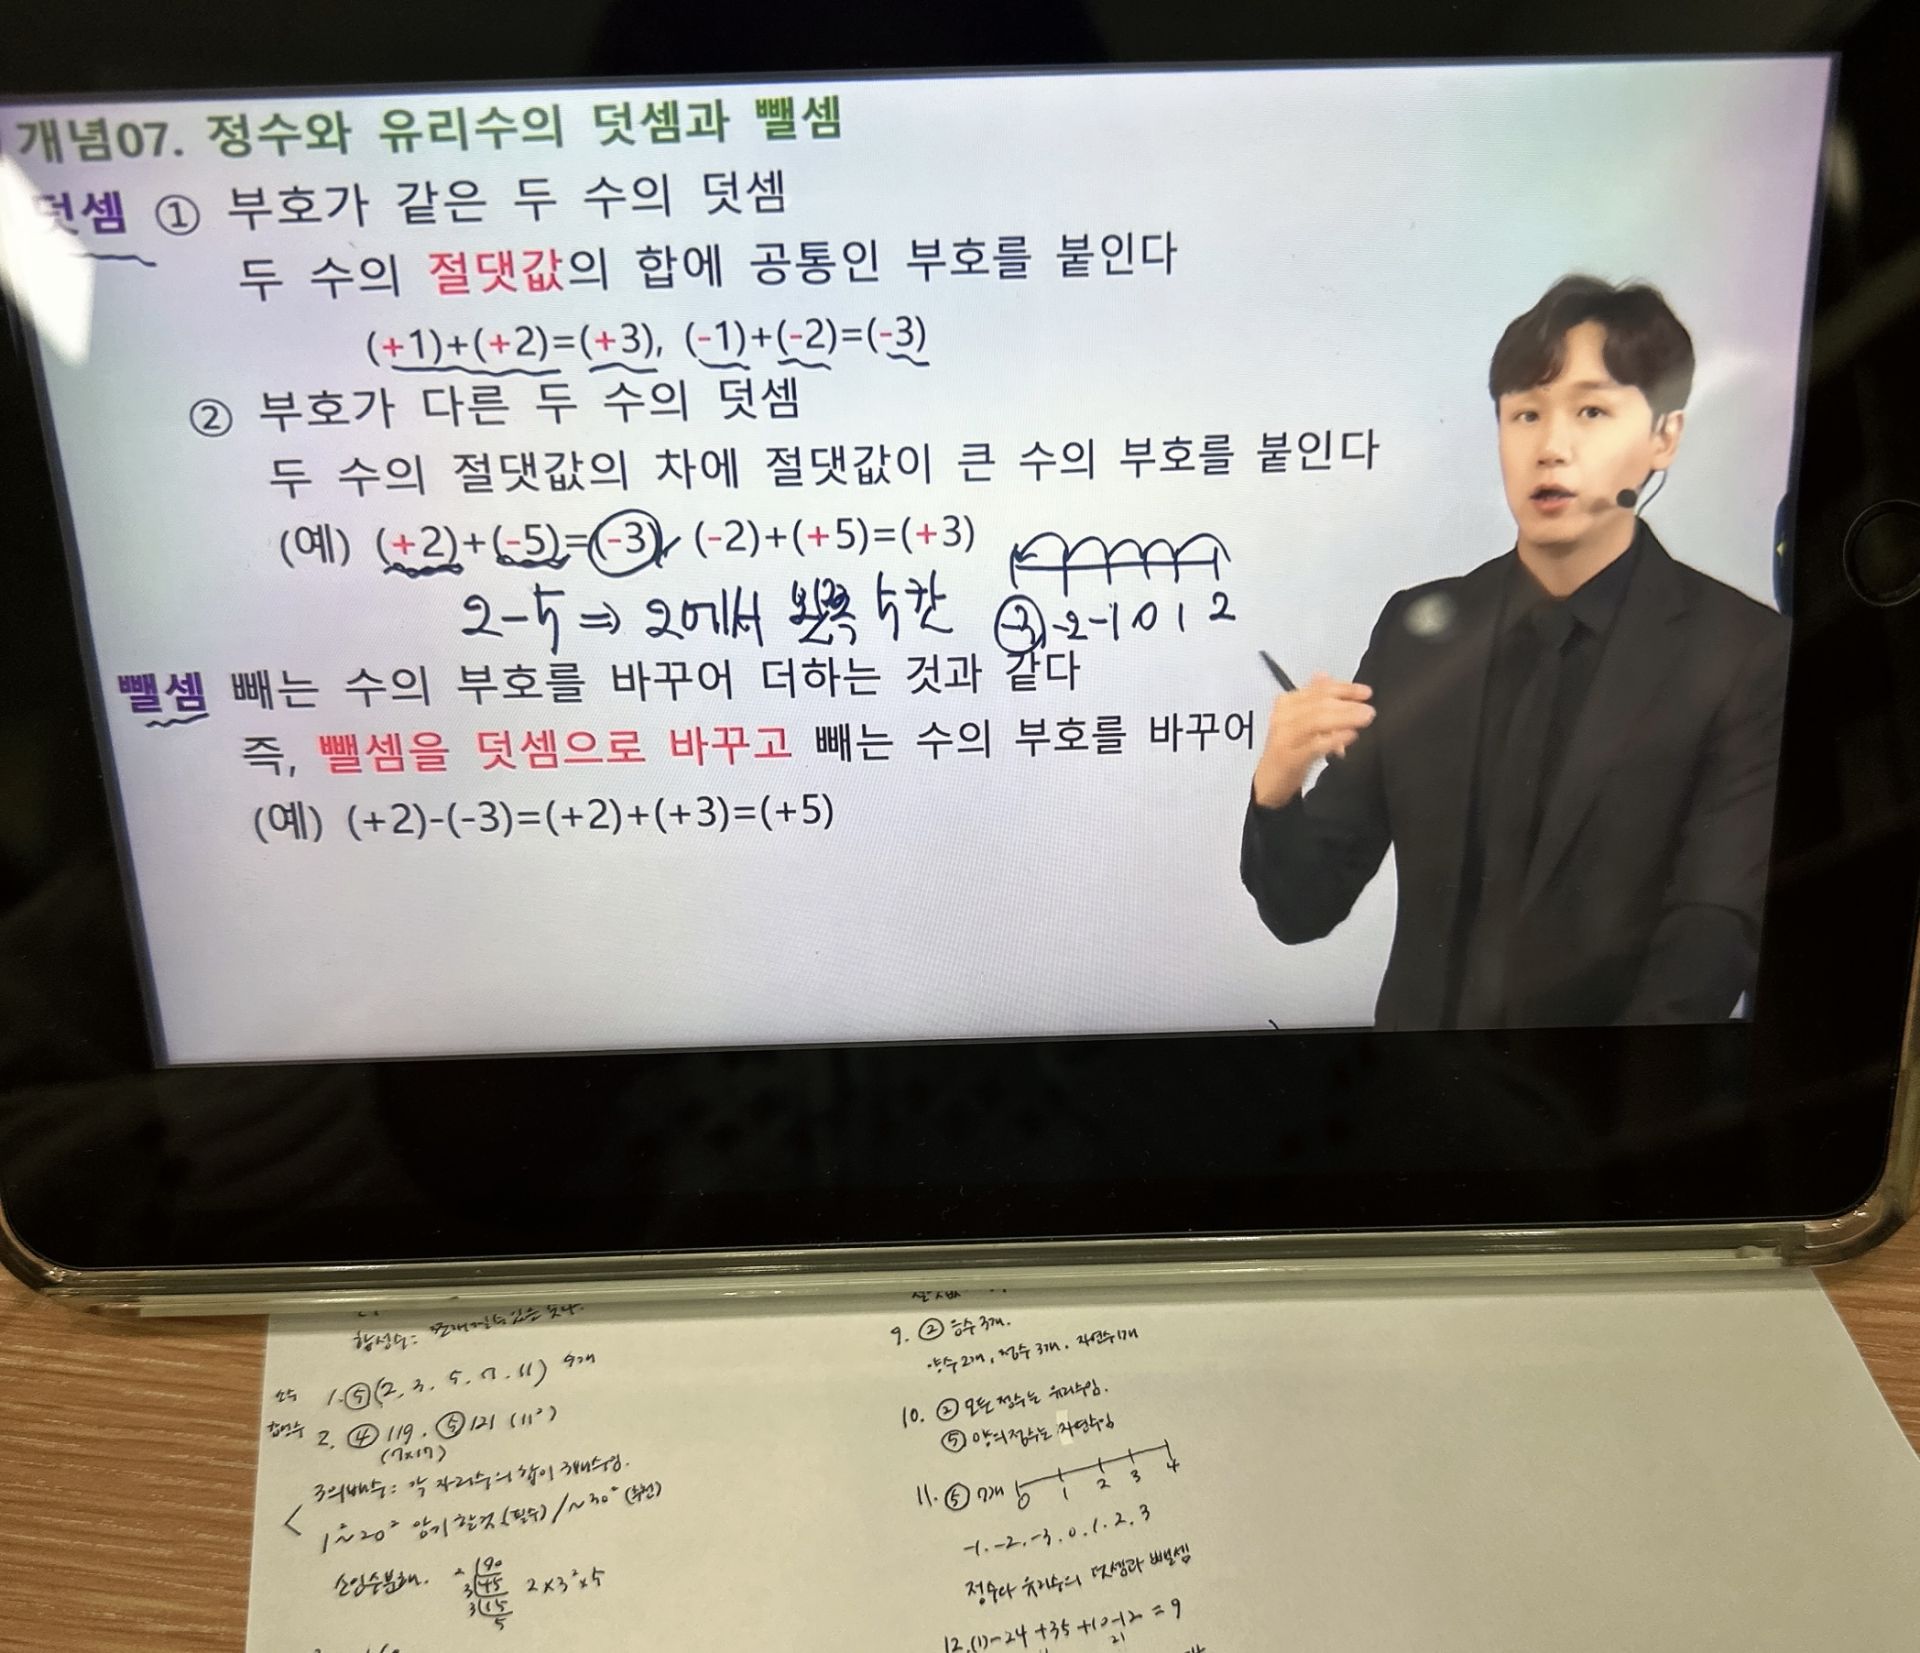 개념07. 정수와 유리수의 덧셈과 뺄셈
덧셈 ① 부호가 같은 두 수의 덧셈
두 수의 절댓값의 합에 공통인 부호를 붙인다
(+1)+(+2)=(+3), (-1)+(-2)=(-3)
② 부호가 다른 두 수의 덧셈
두 수의 절댓값의 차에 절댓값이 큰 수의 부호를 붙인다
(예) (+2)+(-5)=(-3), (-2)+(+5)=(+3)
2-5 ⇒ 2에서 왼쪽 5칸 -3 -2 -1 0 1 2
뺄셈 빼는 수의 부호를 바꾸어 더하는 것과 같다
즉, 뺄셈을 덧셈으로 바꾸고 빼는 수의 부호를 바꾸어
(예) (+2)-(-3)=(+2)+(+3)=(+5)
합성수:
소수 1. ⑤ (2, 3, 5, 7, 11) 5개
합성수 2. ④ 119, ⑤ 121 (11²)
(7×17)
3의 배수: 각 자리수의 합이 3배수임.
1²~20² 암기할것(필수) / ~30² (추천)
소인수분해. 2 90
3 45 2×3²×5
3 15
5
9. ② 음수 3개.
양수 2개, 정수 3개, 자연수 1개
10. ② 모든 정수는 유리수임.
⑤ 양의 정수는 자연수임
11. ⑤ 7개 0 1 2 3 4
-1, -2, -3, 0, 1, 2, 3
정수와 유리수의 덧셈과 뺄셈
12. (1) -24+35+10-12 = 9
21